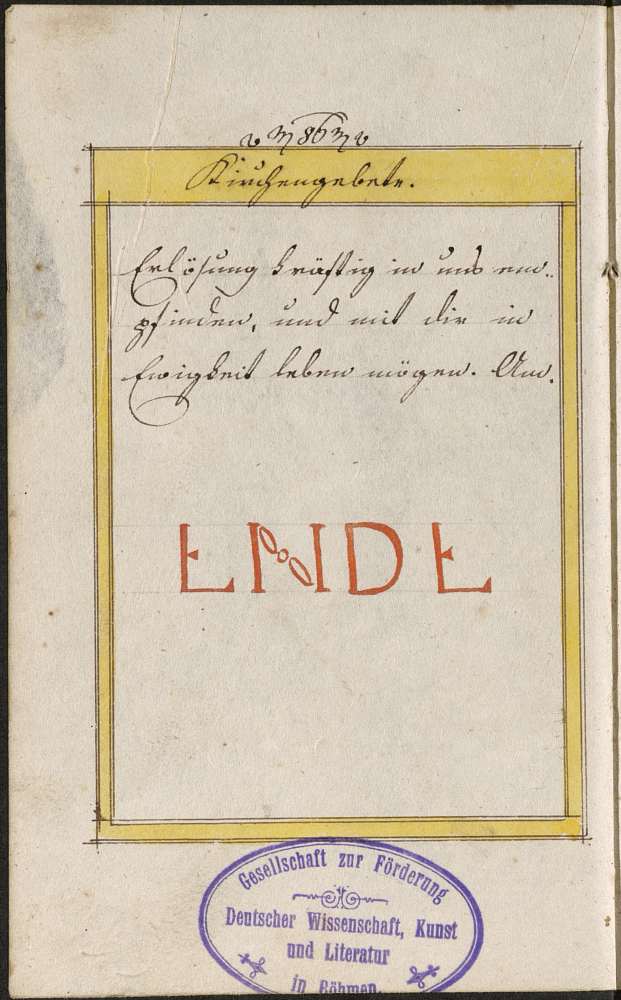 86
Kirchengebete.
Erlösung kräftig in uns em-
pfinden, und mit dir in
Ewigkeit leben mögen. Am.
ENDE
Gesellschaft zur Förderung
Deutscher Wissenschaft, Kunst
und Literatur
in Böhmen.